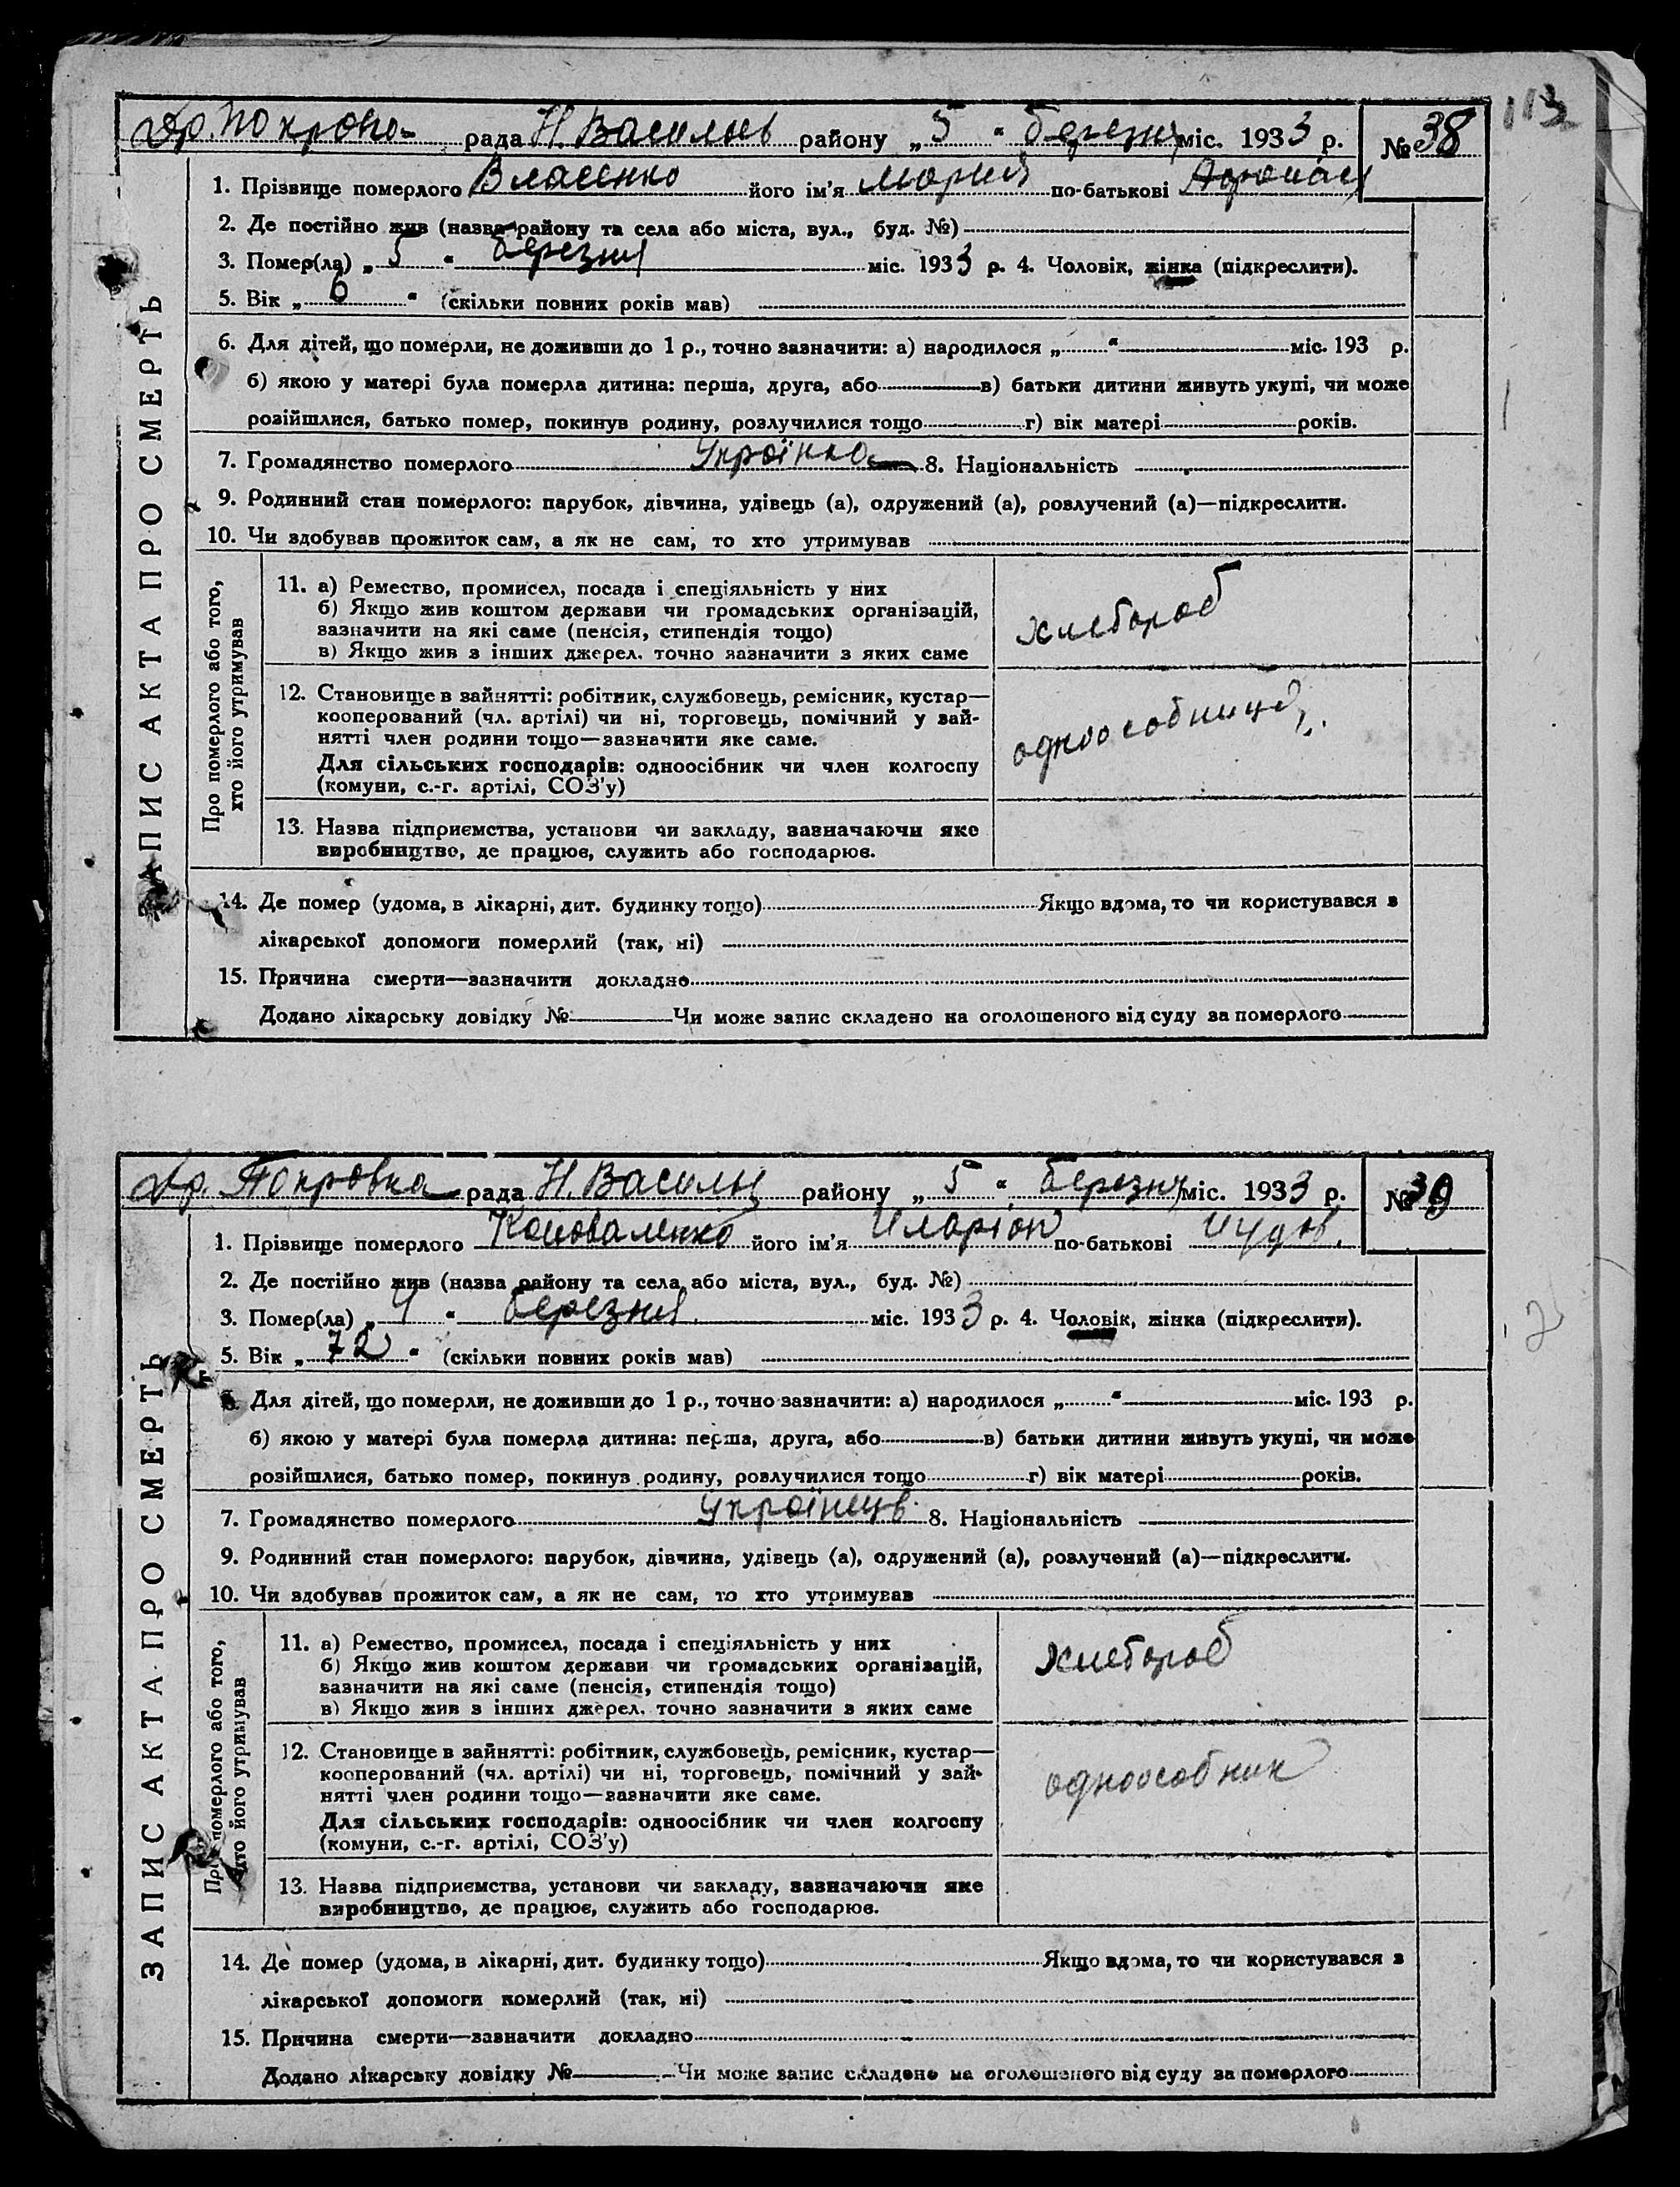 113
Др. Покровс- рада Н. Василів району „5“ березня міс. 1933 р. № 38
ЗАПИС АКТА ПРО СМЕРТЬ
1. Прізвище померлого Власенко його ім'я Мария по-батькові
2. Де постійно жив (назва району та села або міста, вул., буд. №)
3. Помер(ла) „5“ березня міс. 1933 р. 4. Чоловік, жінка (підкреслити).
5. Вік „6“ (скільки повних років мав)
6. Для дітей, що померли, не доживши до 1 р., точно зазначити: а) народилося „ “ міс. 193 р.
б) якою у матері була померла дитина: перша, друга, або в) батьки дитини живуть укупі, чи може
розійшлися, батько помер, покинув родину, розлучилися тощо г) вік матері років.
7. Громадянство померлого Українка 8. Національність
9. Родинний стан померлого: парубок, дівчина, удівець (а), одружений (а), розлучений (а)—підкреслити.
10. Чи здобував прожиток сам, а як не сам, то хто утримував
Про померлого або того,
хто його утримував
11. а) Ремество, промисел, посада і спеціяльність у них
б) Якщо жив коштом держави чи громадських організацій,
зазначити на які саме (пенсія, стипендія тощо)
в) Якщо жив з інших джерел. точно зазначити з яких саме
хлебороб
12. Становище в зайнятті: робітник, службовець, ремісник, кустар—
кооперований (чл. артілі) чи ні, торговець, помічний у зай-
нятті член родини тощо—зазначити яке саме.
Для сільських господарів: одноосібник чи член колгоспу
(комуни, с.-г. артілі, СОЗ'у)
одноособниця
13. Назва підприємства, установи чи закладу, зазначаючи яке
виробництво, де працює, служить або господарює.
14. Де помер (удома, в лікарні, дит. будинку тощо) Якщо вдома, то чи користувався з
лікарської допомоги померлий (так, ні)
15. Причина смерти—зазначити докладно
Додано лікарську довідку № Чи може запис складено на оголошеного від суду за померлого
Др. Покровка рада Н. Василів району „5“ березня міс. 1933 р. № 39
ЗАПИС АКТА ПРО СМЕРТЬ
1. Прізвище померлого Коноваленко його ім'я Иларіон по-батькові
2. Де постійно жив (назва району та села або міста, вул., буд. №)
3. Помер(ла) „4“ березня міс. 1933 р. 4. Чоловік, жінка (підкреслити).
5. Вік „72“ (скільки повних років мав)
6. Для дітей, що померли, не доживши до 1 р., точно зазначити: а) народилося „ “ міс. 193 р.
б) якою у матері була померла дитина: перша, друга, або в) батьки дитини живуть укупі, чи може
розійшлися, батько помер, покинув родину, розлучилися тощо г) вік матері років.
7. Громадянство померлого Українець 8. Національність
9. Родинний стан померлого: парубок, дівчина, удівець (а), одружений (а), розлучений (а)—підкреслити.
10. Чи здобував прожиток сам, а як не сам, то хто утримував
Про померлого або того,
хто його утримував
11. а) Ремество, промисел, посада і спеціяльність у них
б) Якщо жив коштом держави чи громадських організацій,
зазначити на які саме (пенсія, стипендія тощо)
в) Якщо жив з інших джерел. точно зазначити з яких саме
хлебороб
12. Становище в зайнятті: робітник, службовець, ремісник, кустар—
кооперований (чл. артілі) чи ні, торговець, помічний у зай-
нятті член родини тощо—зазначити яке саме.
Для сільських господарів: одноосібник чи член колгоспу
(комуни, с.-г. артілі, СОЗ'у)
одноособник
13. Назва підприємства, установи чи закладу, зазначаючи яке
виробництво, де працює, служить або господарює.
14. Де помер (удома, в лікарні, дит. будинку тощо) Якщо вдома, то чи користувався з
лікарської допомоги померлий (так, ні)
15. Причина смерти—зазначити докладно
Додано лікарську довідку № Чи може запис складено на оголошеного від суду за померлого